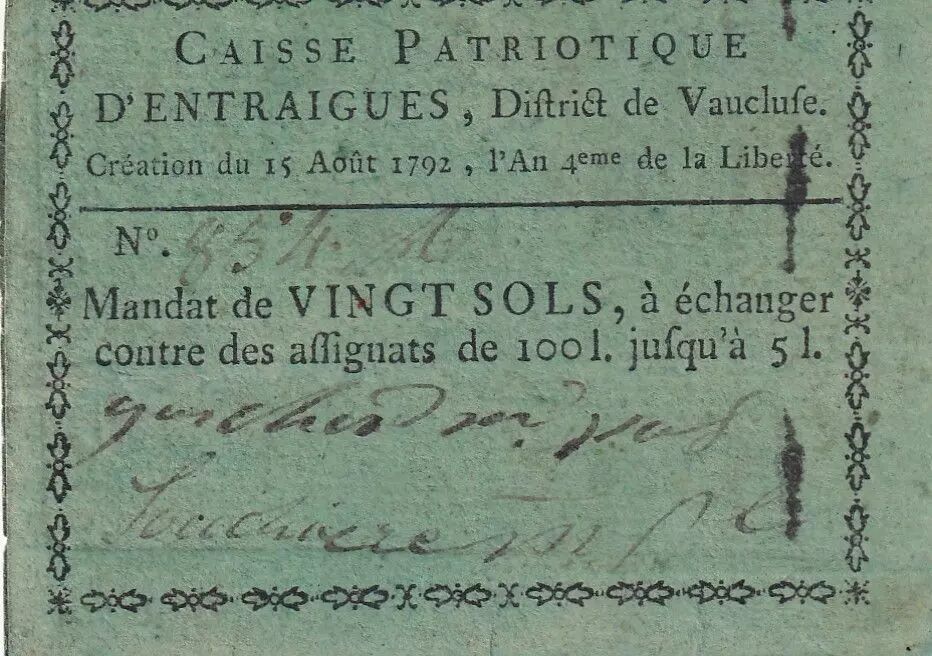 CAISSE PATRIOTIQUE
D'ENTRAIGUES, Diſtrict de Vaucluſe.
Création du 15 Août 1792, l'An 4eme de la Liberté.
Nº. 854
Mandat de VINGT SOLS, à échanger
contre des aſſignats de 100 l. juſqu'à 5 l.